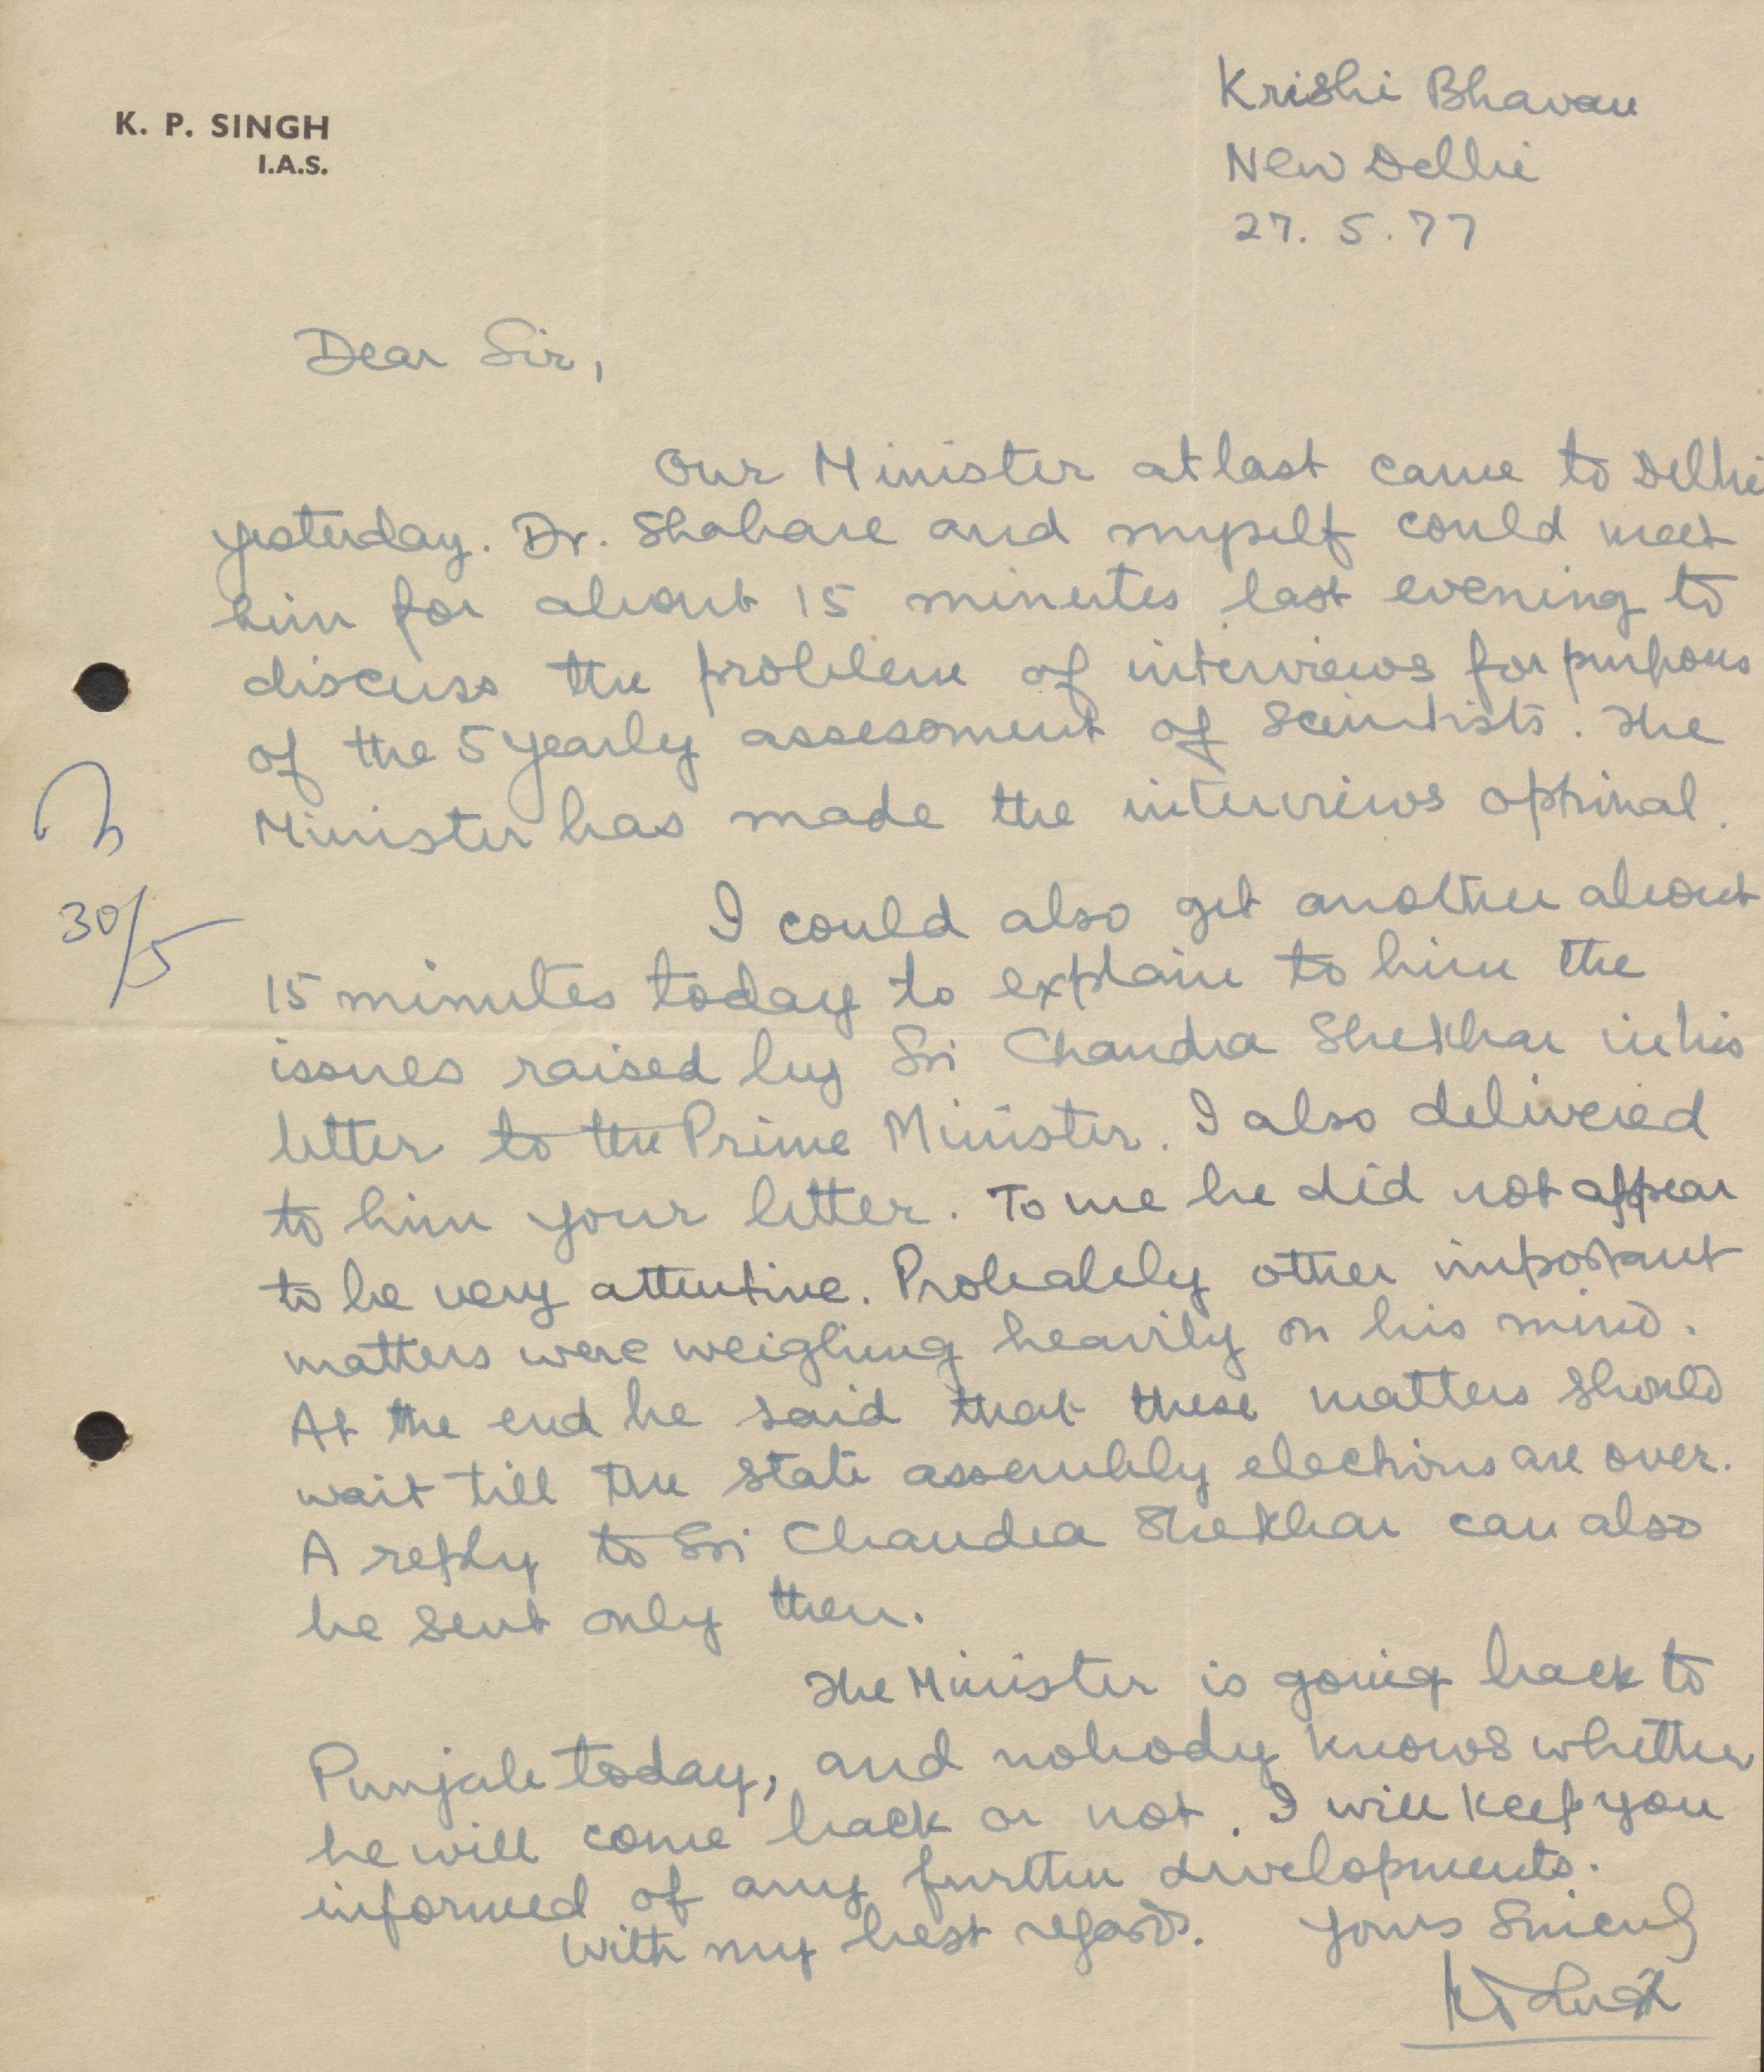 K. P. SINGH
I.A.S.
Krishi Bhavan
New Delhi
27. 5. 77
Dear Sir,
Our Minister at last came to Delhi
yesterday. Dr. Shahare and myself could meet
him for about 15 minutes last evening to
discuss the problem of interviews for purposes
of the 5 yearly assessment of Scientists. The
Minister has made the interviews optional.
I could also get another about
15 minutes today to explain to him the
issues raised by Sri Chandra Shekhar in his
letter to the Prime Minister. I also delivered
to him your letter. To me he did not appear
to be very attentive. Probably other important
matters were weighing heavily on his mind.
At the end he said that these matters should
wait till the state assembly elections are over.
A reply to Sri Chandra Shekhar can also
be sent only then.
The Minister is going back to
Punjab today, and nobody knows whether
he will come back or not. I will keep you
informed of any further developments.
With my best regards. Yours Sincerely
30/5